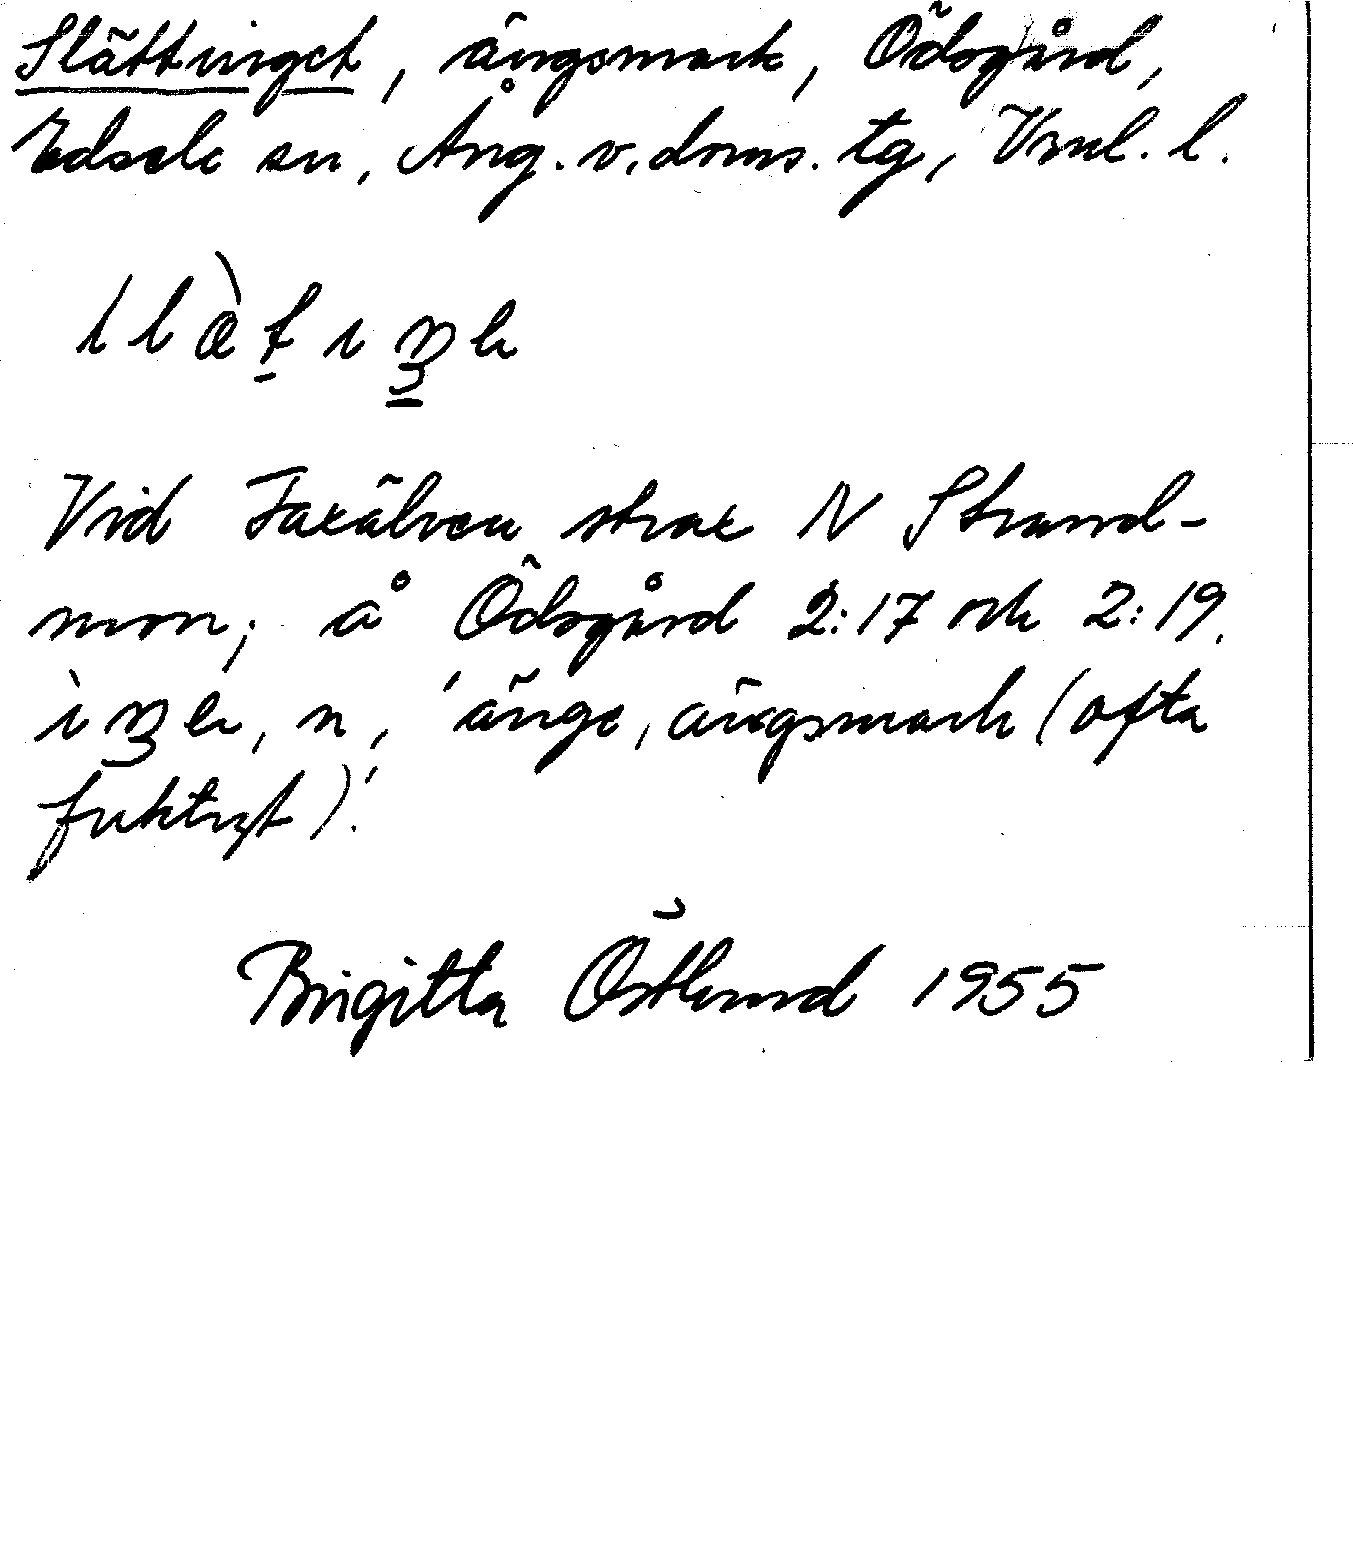 Slättinget, ängsmark, Ödsgård,
Edsele sn, Ång. v. doms. tg, Vnl. l.
Vid Faxälven strax N Strand-
mon; å Ödsgård 2:17 och 2:19.
n, 'änge, ängsmark (ofta
fuktigt)'.
Birgitta Östlund 1955